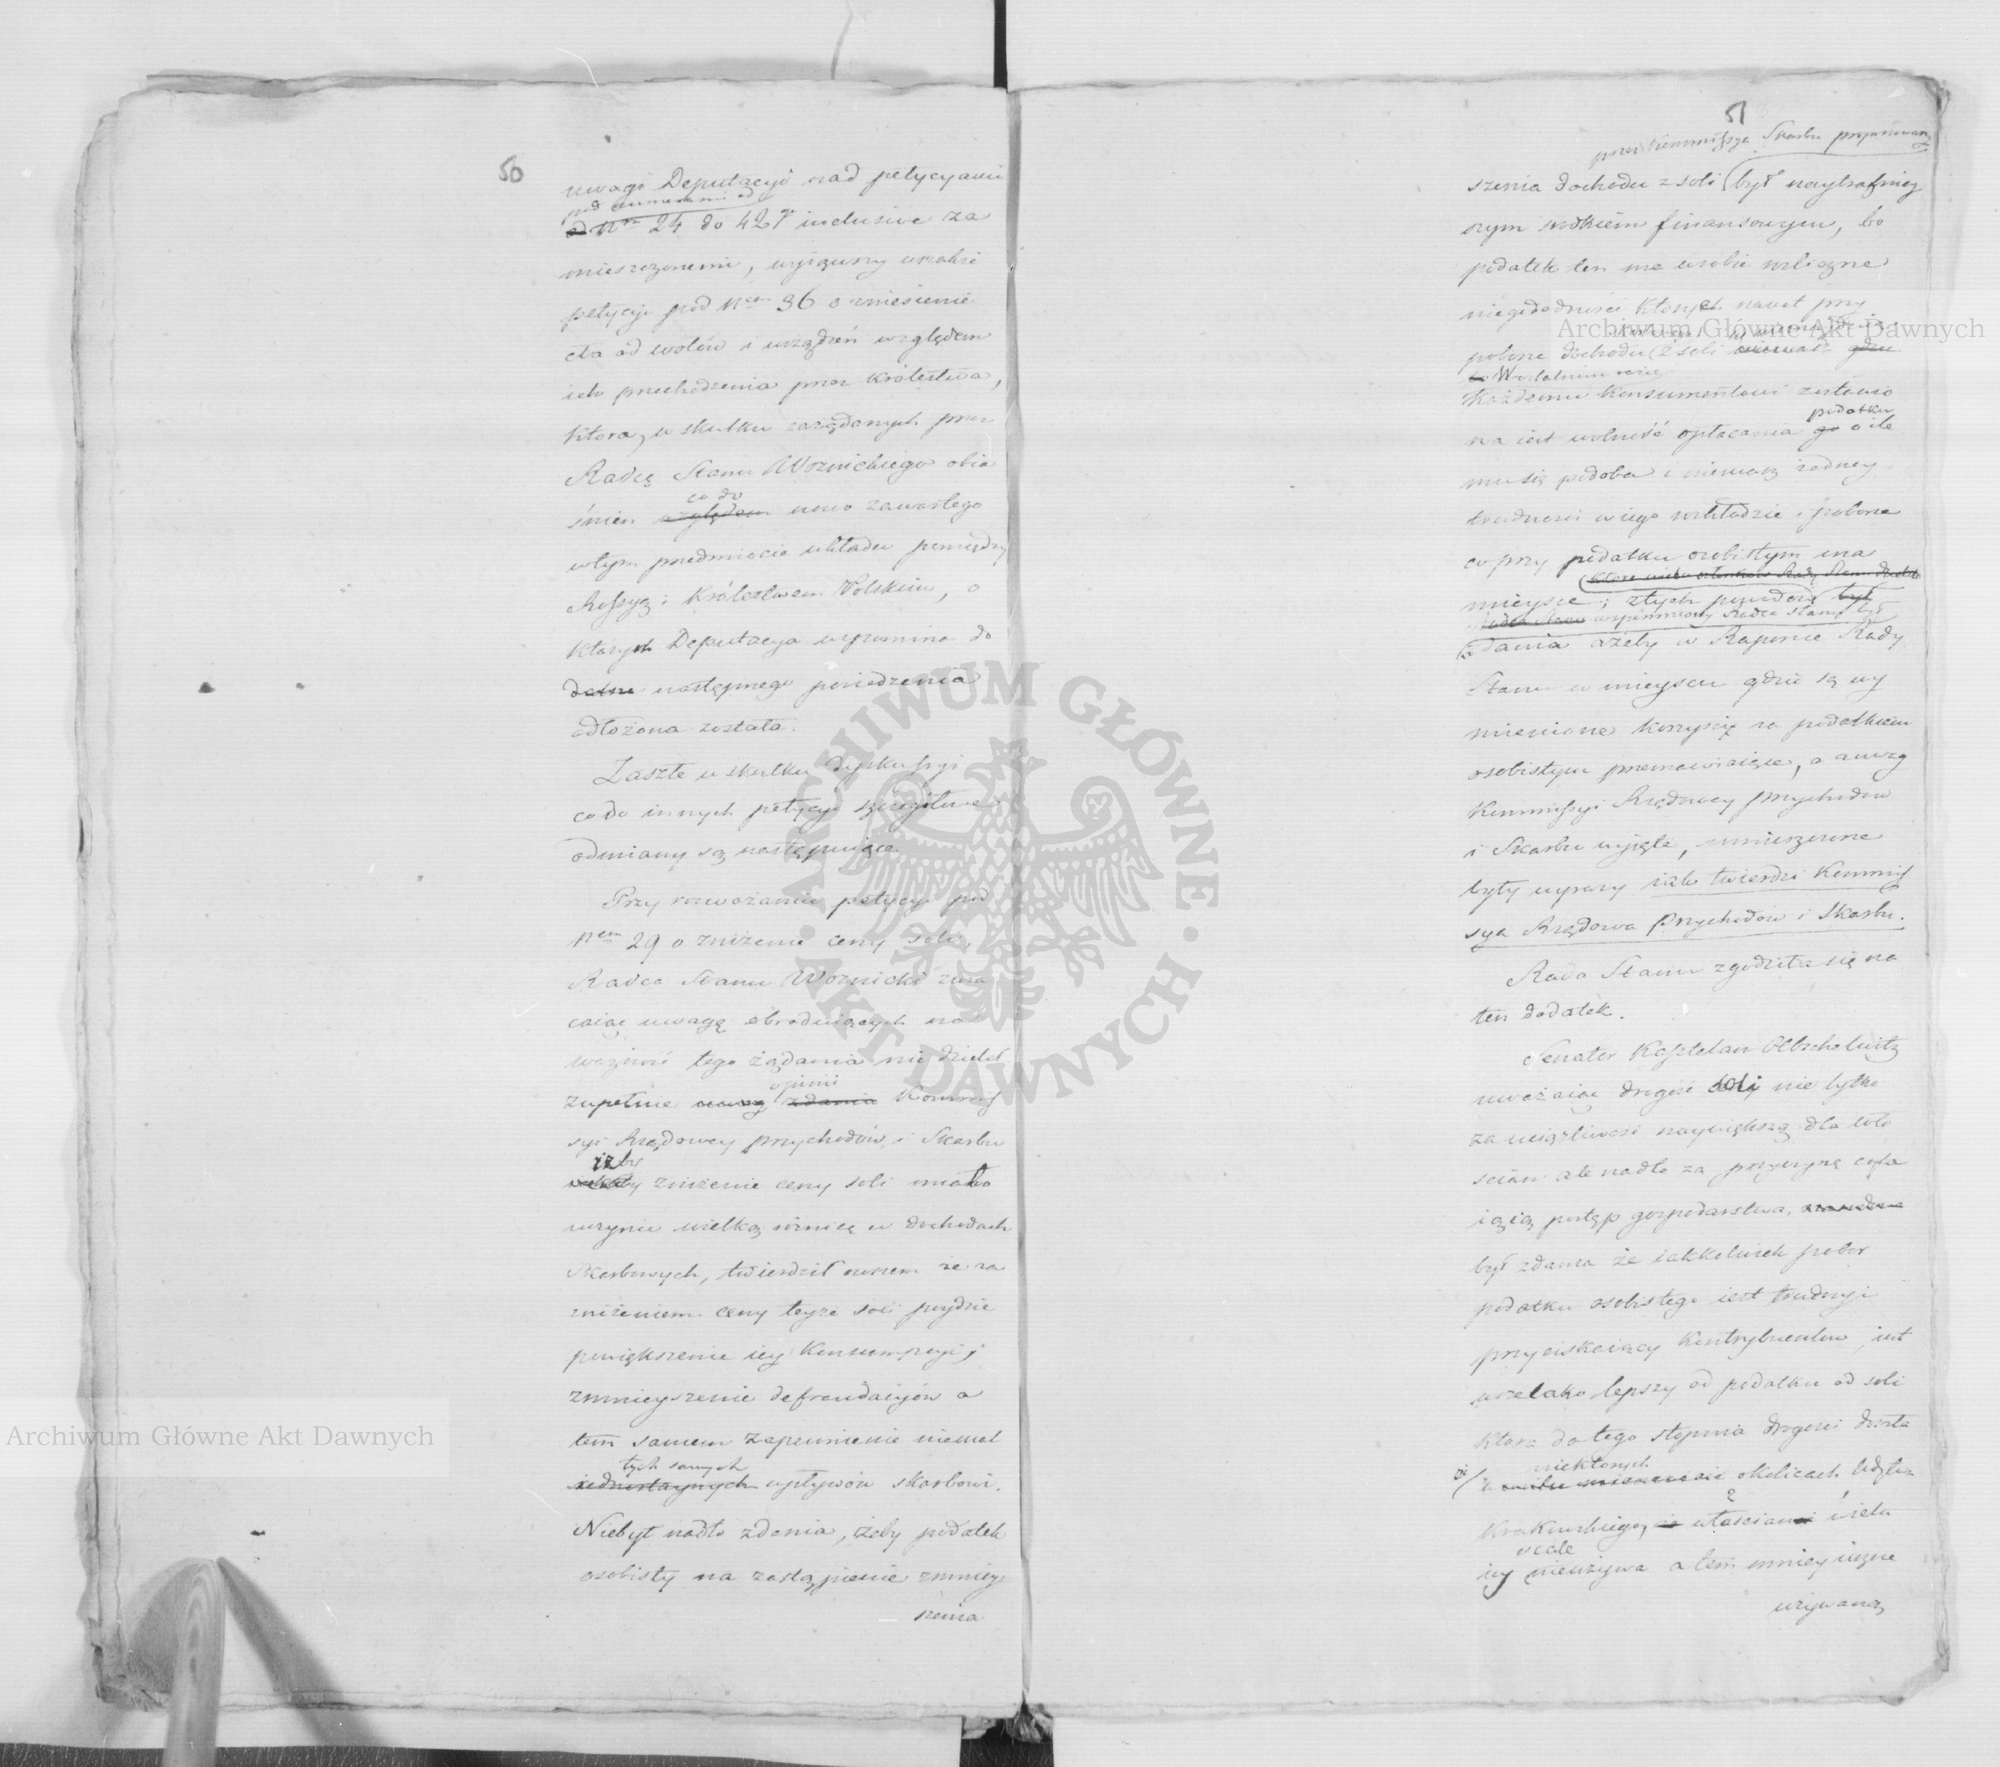 50
uwagi Deputacyi nad petycyami
pod numerami od
od Nru 24 do 42 inclusive za
mieszczonemi, wyiąwszy wszakże
petycyi pod Nrem 36 o zniesienie
cła od wołów i urządzeń względem
ich przechodzenia przez Królestwo,
która, w skutku zażądanych przez
Radcę Stanu Woznickiego obia
co do
śnien względem nowo zawartego
w tym przedmiocie układu pomiędzy
Rossyą i Królestwem Polskim, o
których Deputacya wspomina do
dalsze następnego posiedzenia
odłożona została.
Zaszłe w skutku dyskussyi
co do innych petycyi szczególne
odmiany są następuiące
Przy rozważaniu petycyi pod
Nrem 29 o zniżenie ceny soli,
Radca Stanu Woznicki zwra
caiąc uwagę obraduiących na
ważność tego żądania nie dzielił
opinii
zupełnie zdania Kommis
syi Rządowey przychodów i Skarbu
iżby
zniżenie ceny soli miało
uczynić wielką różnicę w dochodach
Skarbowych, twierdził owszem że za
zniżeniem ceny teyże soli póydzie
powiększenie iey konsumpcyi i
zmnieyszenie defraudacyów a
tem samem zapewnienie niemal
tych samych
iednostaynych wpływów skarbowi.
Niebył nadto zdania, iżeby podatek
osobisty na zastąpienie zmniey
szenia
51
przez Kommissyą Skarbu proponowany
szenia dochodu z soli był naytrafniey
szym środkiem finansowym, bo
podatek ten ma w sobie rozliczne
niegodności których nawet przy
poborze dochodu z soli niemasz gdzie
W ostatnim razie
każdemu konsumentowi zostawio
podatku
na iest wolność opłacania go o ile
mu się podoba i niemasz żadney
trudności w iego rozkładzie i poborze
co przy podatku osobistym ma
mieysce; z tych powodów był
wspomniony Radca Stanu był
zdania ażeby w Raporcie Rady
Stanu w mieyscu gdzie są wy
mienione korzyści za podatkiem
osobistym przemawiaiące, a z uwag
Kommissyi Rządowey Przychodów
i Skarbu wyięte, umieszczone
były wyrazy iak twierdzi Kommis
sya Rządowa Przychodów i Skarbu.
Rada Stanu zgodziła się na
ten dodatek.
Senator Kasztelan Olszchelwitz
uważaiąc drogość soli nie tylko
za uciążliwość naywiększą dla wło
ścian ale nadto za przyczynę cofa
iącą postęp gospodarstwa,
był zdania że iakkolwiek pobór
podatku osobistego iest trudny i
przyciskaiący kontrybuentów, iest
wszelako lepszy od podatku od soli
która do tego stopnia drogości doszła
niektórych
że w okolicach Wdztwa
Krakowskiego, włościan wielu
wcale
iey nieużywa a tem mniey może
używaną